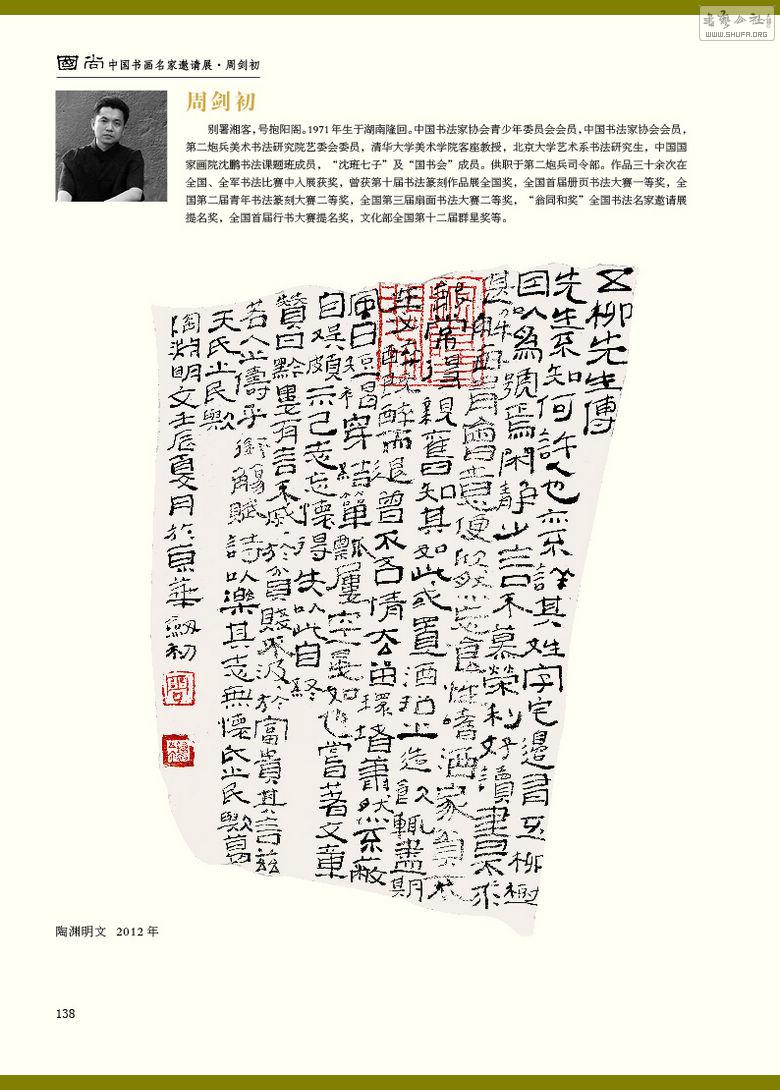 國尚 中国书画名家邀请展·周剑初
書藝公社
WWW.SHUFA.ORG
周剑初
别署湘客，号抱阳阁。1971年生于湖南隆回。中国书法家协会青少年委员会会员，中国书法家协会会员，
第二炮兵美术书法研究院艺委会委员，清华大学美术学院客座教授，北京大学艺术系书法研究生，中国国
家画院沈鹏书法课题班成员，“沈班七子”及“国书会”成员。供职于第二炮兵司令部。作品三十余次在
全国、全军书法比赛中入展获奖，曾获第十届书法篆刻作品展全国奖，全国首届册页书法大赛一等奖，全
国第二届青年书法篆刻大赛二等奖，全国第三届扇面书法大赛二等奖，“翁同和奖”全国书法名家邀请展
提名奖，全国首届行书大赛提名奖，文化部全国第十二届群星奖等。
五柳先生傳
先生不知何許人也亦不詳其姓字宅邊有五柳樹
因以為號焉閑静少言不慕榮利好讀書不求
甚解每有會意便欣然忘食性嗜酒家貧不
能常得親舊知其如此或置酒招之造飲輒盡期
在必醉既醉而退曾不吝情去留環堵蕭然不蔽
風日短褐穿結簞瓢屢空晏如也嘗著文章
自娱頗示己志忘懷得失以此自終
贊曰黔婁有言不戚於貧賤不汲於富貴其言茲
若人之儔乎銜觴賦詩以樂其志無懷氏之民歟葛
天氏之民歟
陶淵明文壬辰夏月於京華劍初
陶渊明文 2012年
138